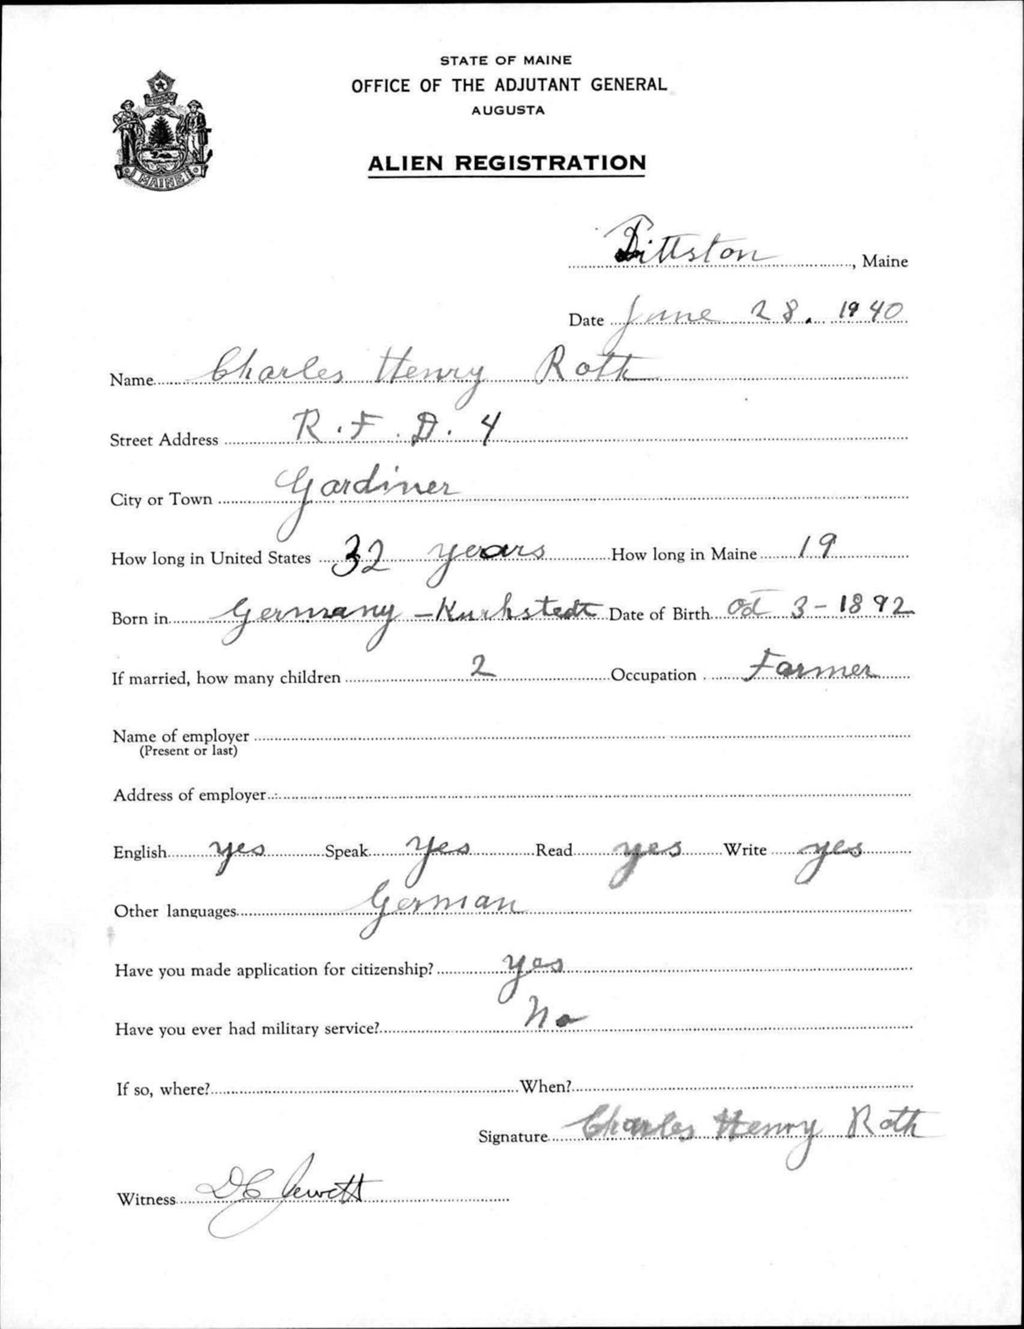 STATE OF MAINE
OFFICE OF THE ADJUTANT GENERAL
AUGUSTA
ALIEN REGISTRATION
MAINE
Pittston, Maine
Date June 28, 1940
Name Charles Henry Roth
Street Address R.F.D. 4
City or Town Gardiner
How long in United States 32 years How long in Maine 19
Born in Germany - Date of Birth Oct 3 - 1892
If married, how many children 2 Occupation Farmer
Name of employer
(Present or last)
Address of employer
English yes Speak yes Read yes Write yes
Other languages German
Have you made application for citizenship? yes
Have you ever had military service? No
If so, where? When?
Signature Charles Henry Roth
Witness D C Jewett